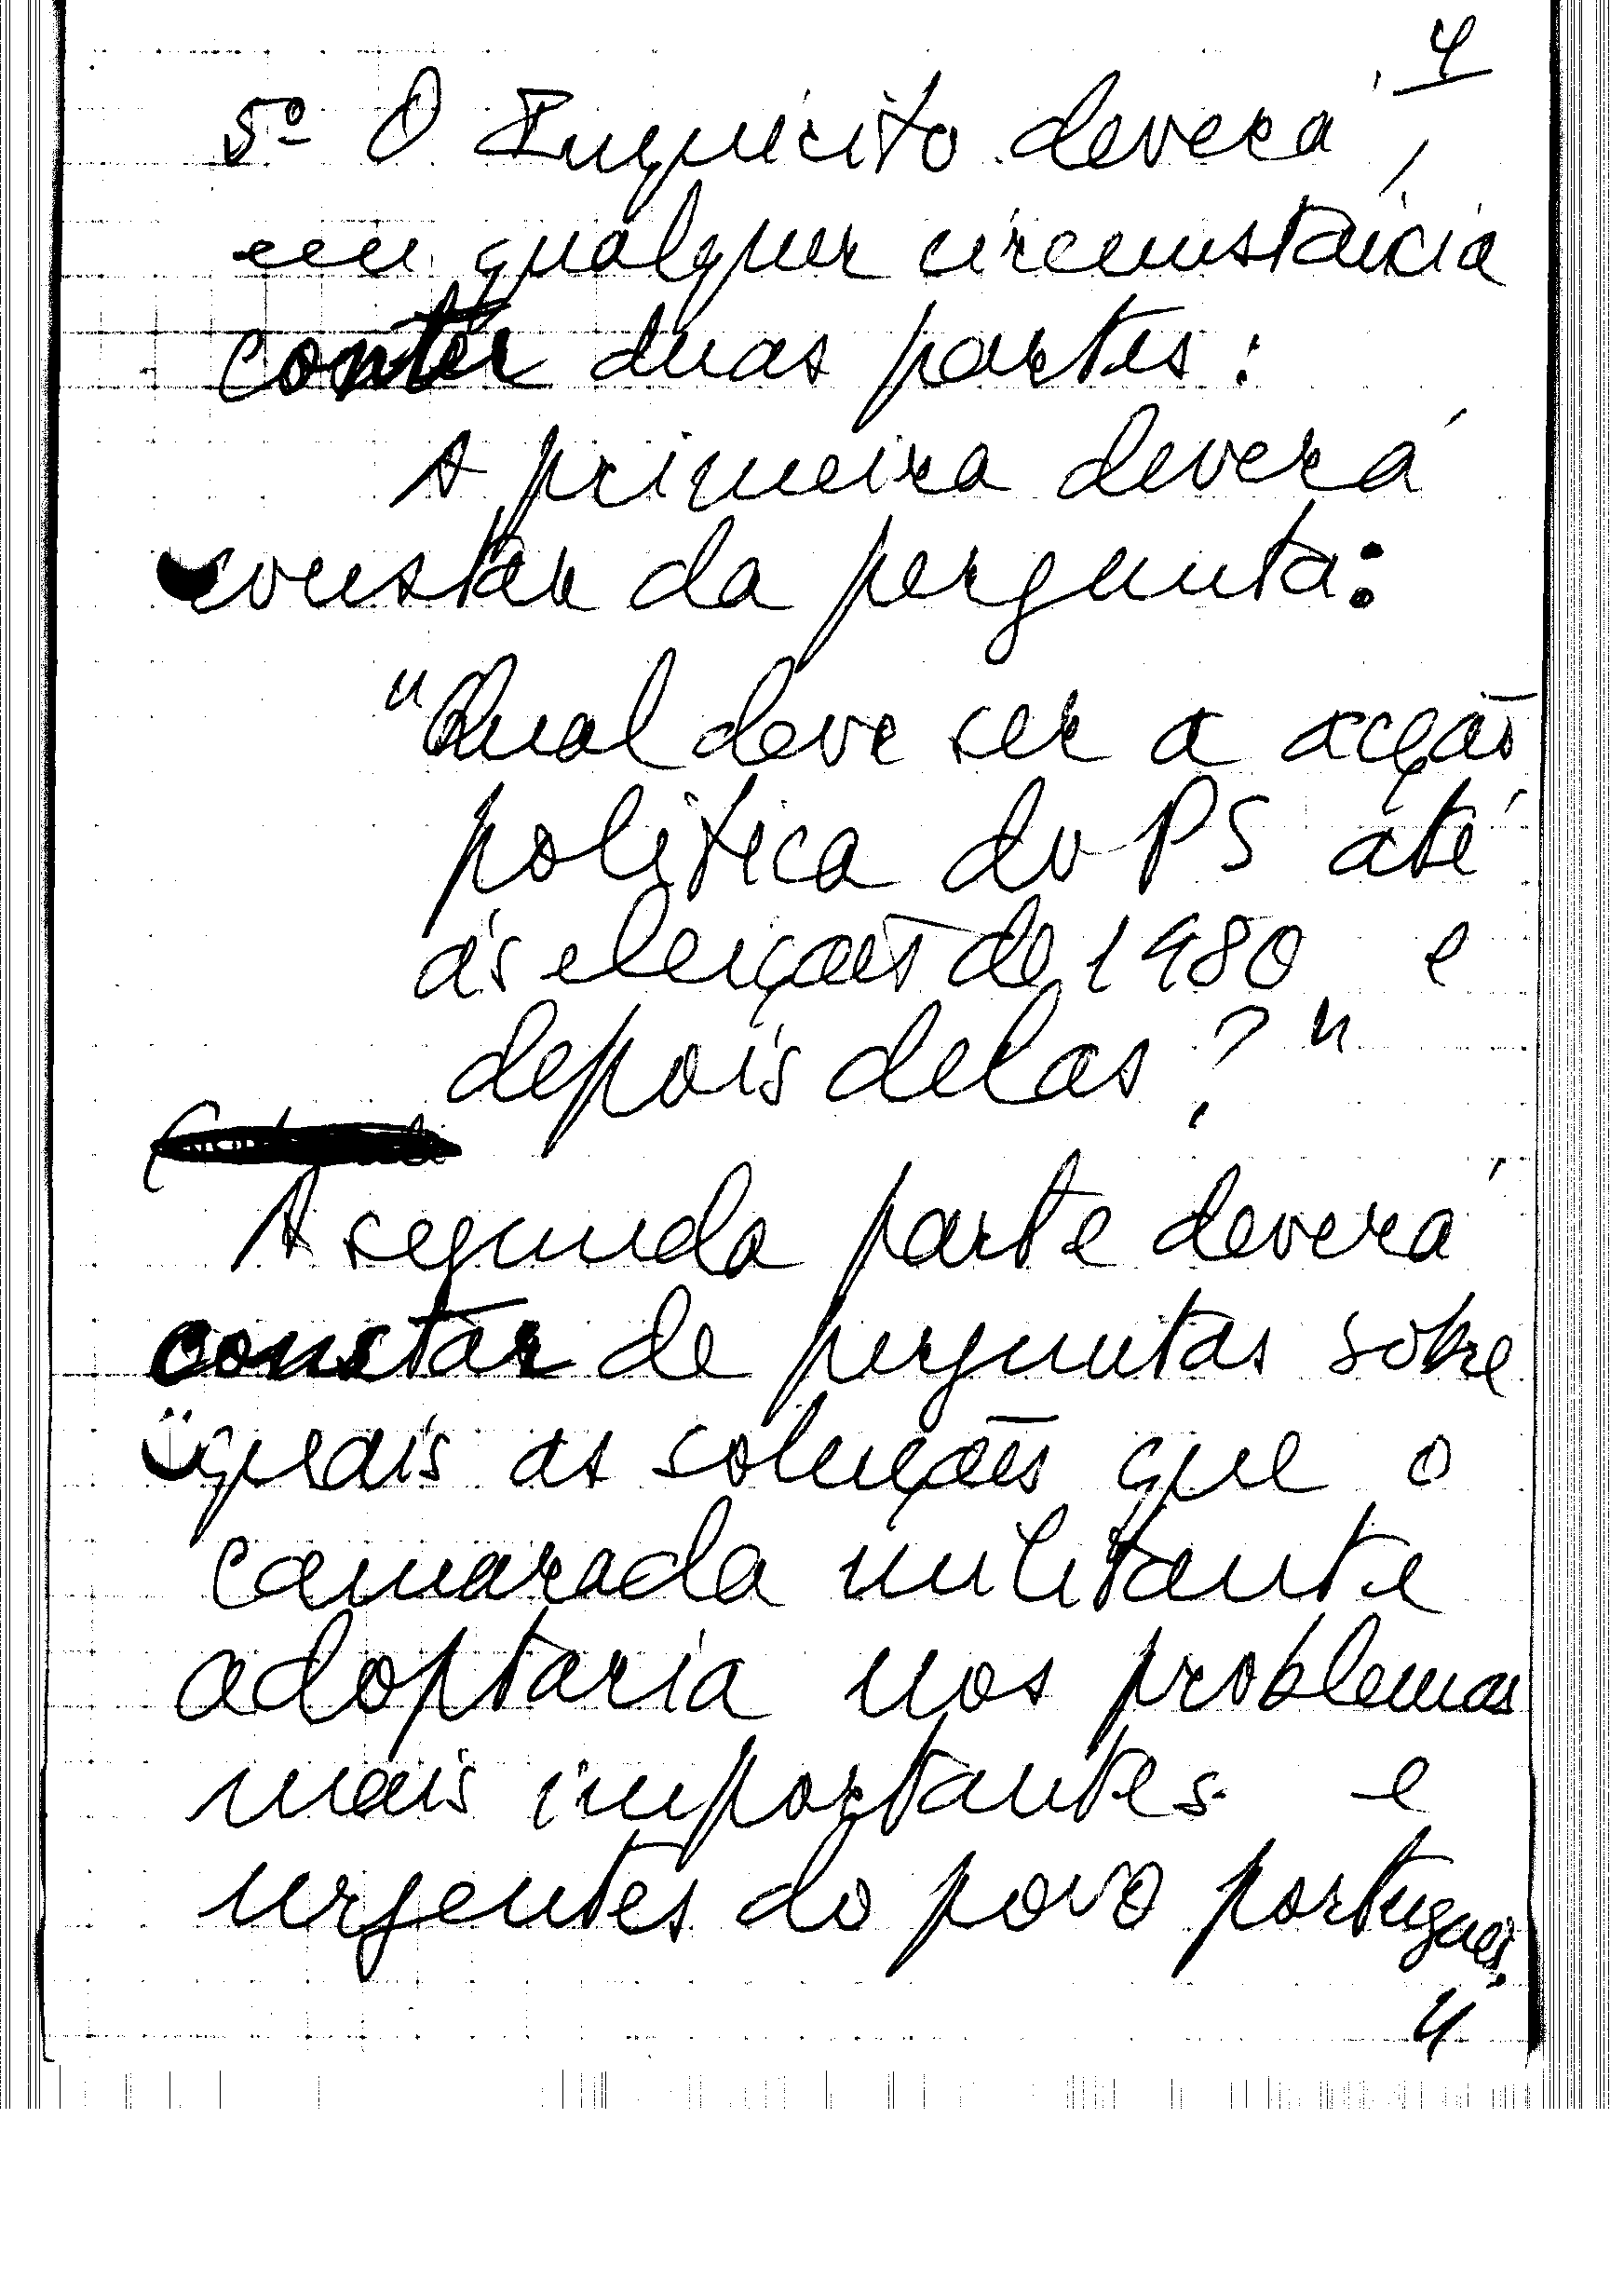 4
5º O Inquérito deverá,
em qualquer circunstância
conter duas partes:
A primeira deverá
constar da pergunta:
"Qual deve ser a acção
política do PS até
ás eleições de 1980 e
depois delas?"
A segunda parte deverá
constar de perguntas sobre
quais as soluções que o
camarada militante
adoptaria nos problemas
mais importantes e
urgentes do povo português.
4